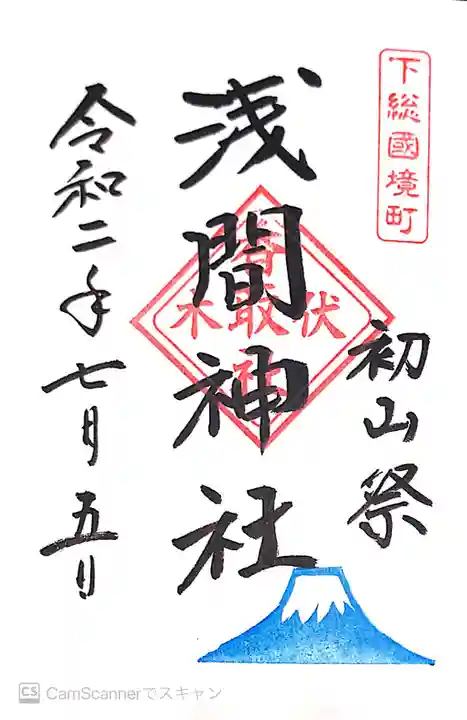 下総國境町
初山祭
浅間神社
伏取木
令和二年七月五日
CS CamScannerでスキャン